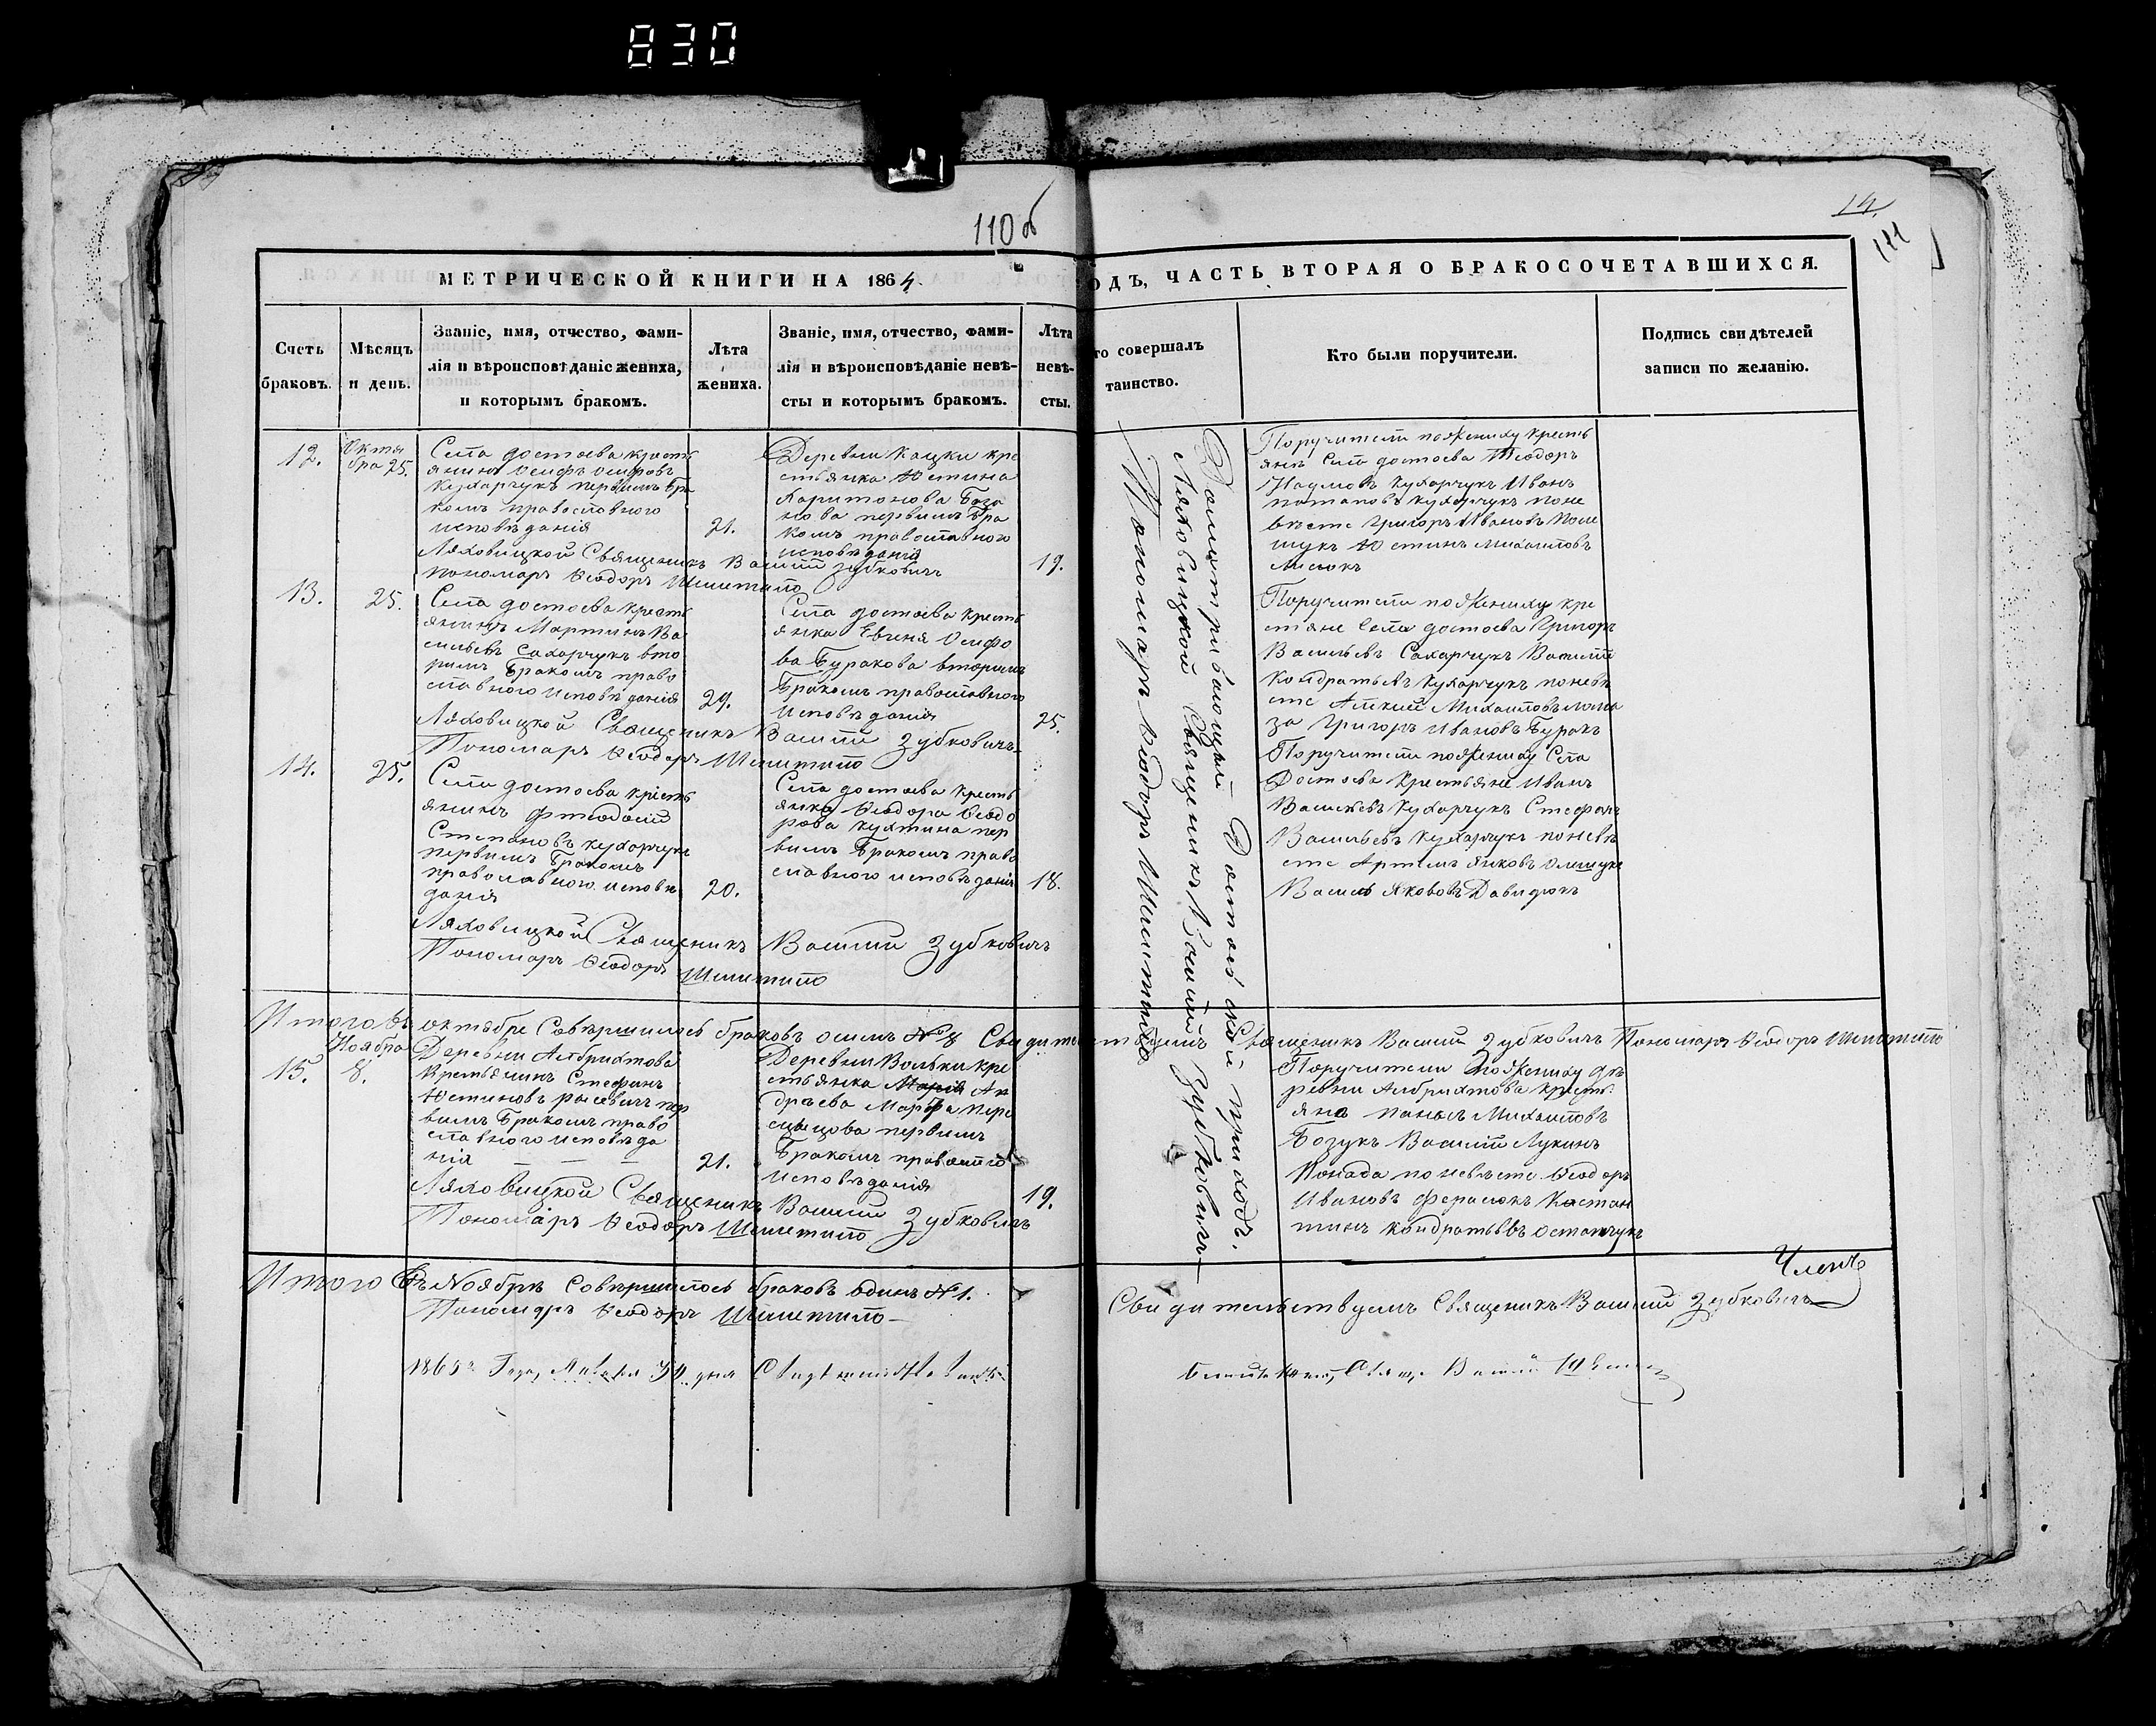 830
110 об
14.
111
МЕТРИЧЕСКОЙ КНИГИ НА 1864.
ОДЪ, ЧАСТЬ ВТОРАЯ О БРАКОСОЧЕТАВШИХСЯ.
Счетъ
браковъ.
Мѣсяцъ
и день.
Званіе, имя, отчество, фами-
лія и вѣроисповѣданіе жениха,
и которымъ бракомъ.
Лѣта
жениха.
Званіе, имя, отчество, фами-
лія и вѣроисповѣданіе невѣ-
сты и которымъ бракомъ.
Лѣта
невѣ-
сты.
то совершалъ
таинство.
Кто были поручители.
Подпись свидѣтелей
записи по желанію.
12.
Октя
бра 25.
Села достоева кресть
янинъ Осифъ Осиповъ
Кухарчукъ первымъ бра
комъ православного
исповѣданія
21.
Деревни Кацки кре
стьянка Юстина
Харитонова
нова первымъ бра
комъ православного
исповѣданія
19.
Ляховицкой Священикъ Василій Зубковичъ
пономарь Ѳеодоръ
Поручители пожениху кресть
яне села достоева Ѳеодоръ
Наумовъ Кухарчукъ Иванъ
потаповъ кухарчукъ поне
вѣсте Григоръ Ивановъ Поле
щукъ Юстинъ Михаиловъ
13.
25.
Села достоева кресть
янинъ Мартинъ Ва
сильевъ Сахарчукъ вто
римъ бракомъ право
славного исповѣданія
29.
Села достоева кресть
янка Евгеня Осифо
ва Буракова вторымъ
бракомъ православного
исповѣданія
25.
Ляховицкой Священикъ Василій Зубковичъ
Пономарь Ѳеодоръ
Поручители пожениху кре
стяне Села достоева Григоръ
Васильевъ Сахарчукъ Василій
Кондратьевъ Кухарчукъ поневѣ
сте Михаиловъ
за Григоръ Ивановъ Буракъ
14.
25.
Села достоева кресть
янинъ
Степановъ кухарчукъ
первымъ бракомъ
православного исповѣ
данія
20.
Села достоева кресть
янка Ѳеодора Ѳеодо
рова Кухтина пер
вымъ бракомъ право
славного исповѣданія
18.
Ляховицкой Священикъ Василій Зубковичъ
Пономарь Ѳеодоръ
Поручители пожениху Села
Достоева крестьяне Иванъ
Васильевъ Кухарчукъ Стефанъ
Васильевъ Кухарчукъ поневѣ
сте Артемъ Янковъ
Василь Яковъ Давидюкъ
Досматривающій Достоевской приходъ.
Ляховицкой Священикъ Василій Зубковичъ
Пономарь Ѳеодоръ
Итого въ октябре Совершилось браковъ осемъ № 8 Свидительствуемъ Священикъ Василій Зубковичъ Пономарь Ѳеодоръ
Ноября
15.
8.
Деревни Албрихтова
Крестьянинъ Стефанъ
Юстиновъ пер
вымъ бракомъ право
славного исповѣда
нія
21.
Деревни Вольки кре
стьянка Марія Ан
дреева Марфа
первымъ
бракомъ
исповѣданія
19.
Ляховицкой Священикъ Василій Зубковичъ
Пономарь Ѳеодоръ
Поручители пожениху де
ревни Албрихтова кресть
яне Михаиловъ
Бозукъ Василій Лукинъ
поневѣсте Ѳеодоръ
Ивановъ Костан
тинъ Кондратьевъ Остапчукъ
Итого Въ Ноябрѣ Совершилось браковъ одинъ № 1.
Свидительствуемъ Священикъ Василій Зубковичъ
Пономарь Ѳеодоръ
Членъ
1865 Года, Января 30 дня